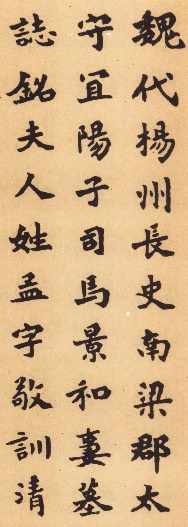 魏代楊州長史南梁郡太
守宜陽子司馬景和妻墓
誌銘夫人姓孟字敬訓清